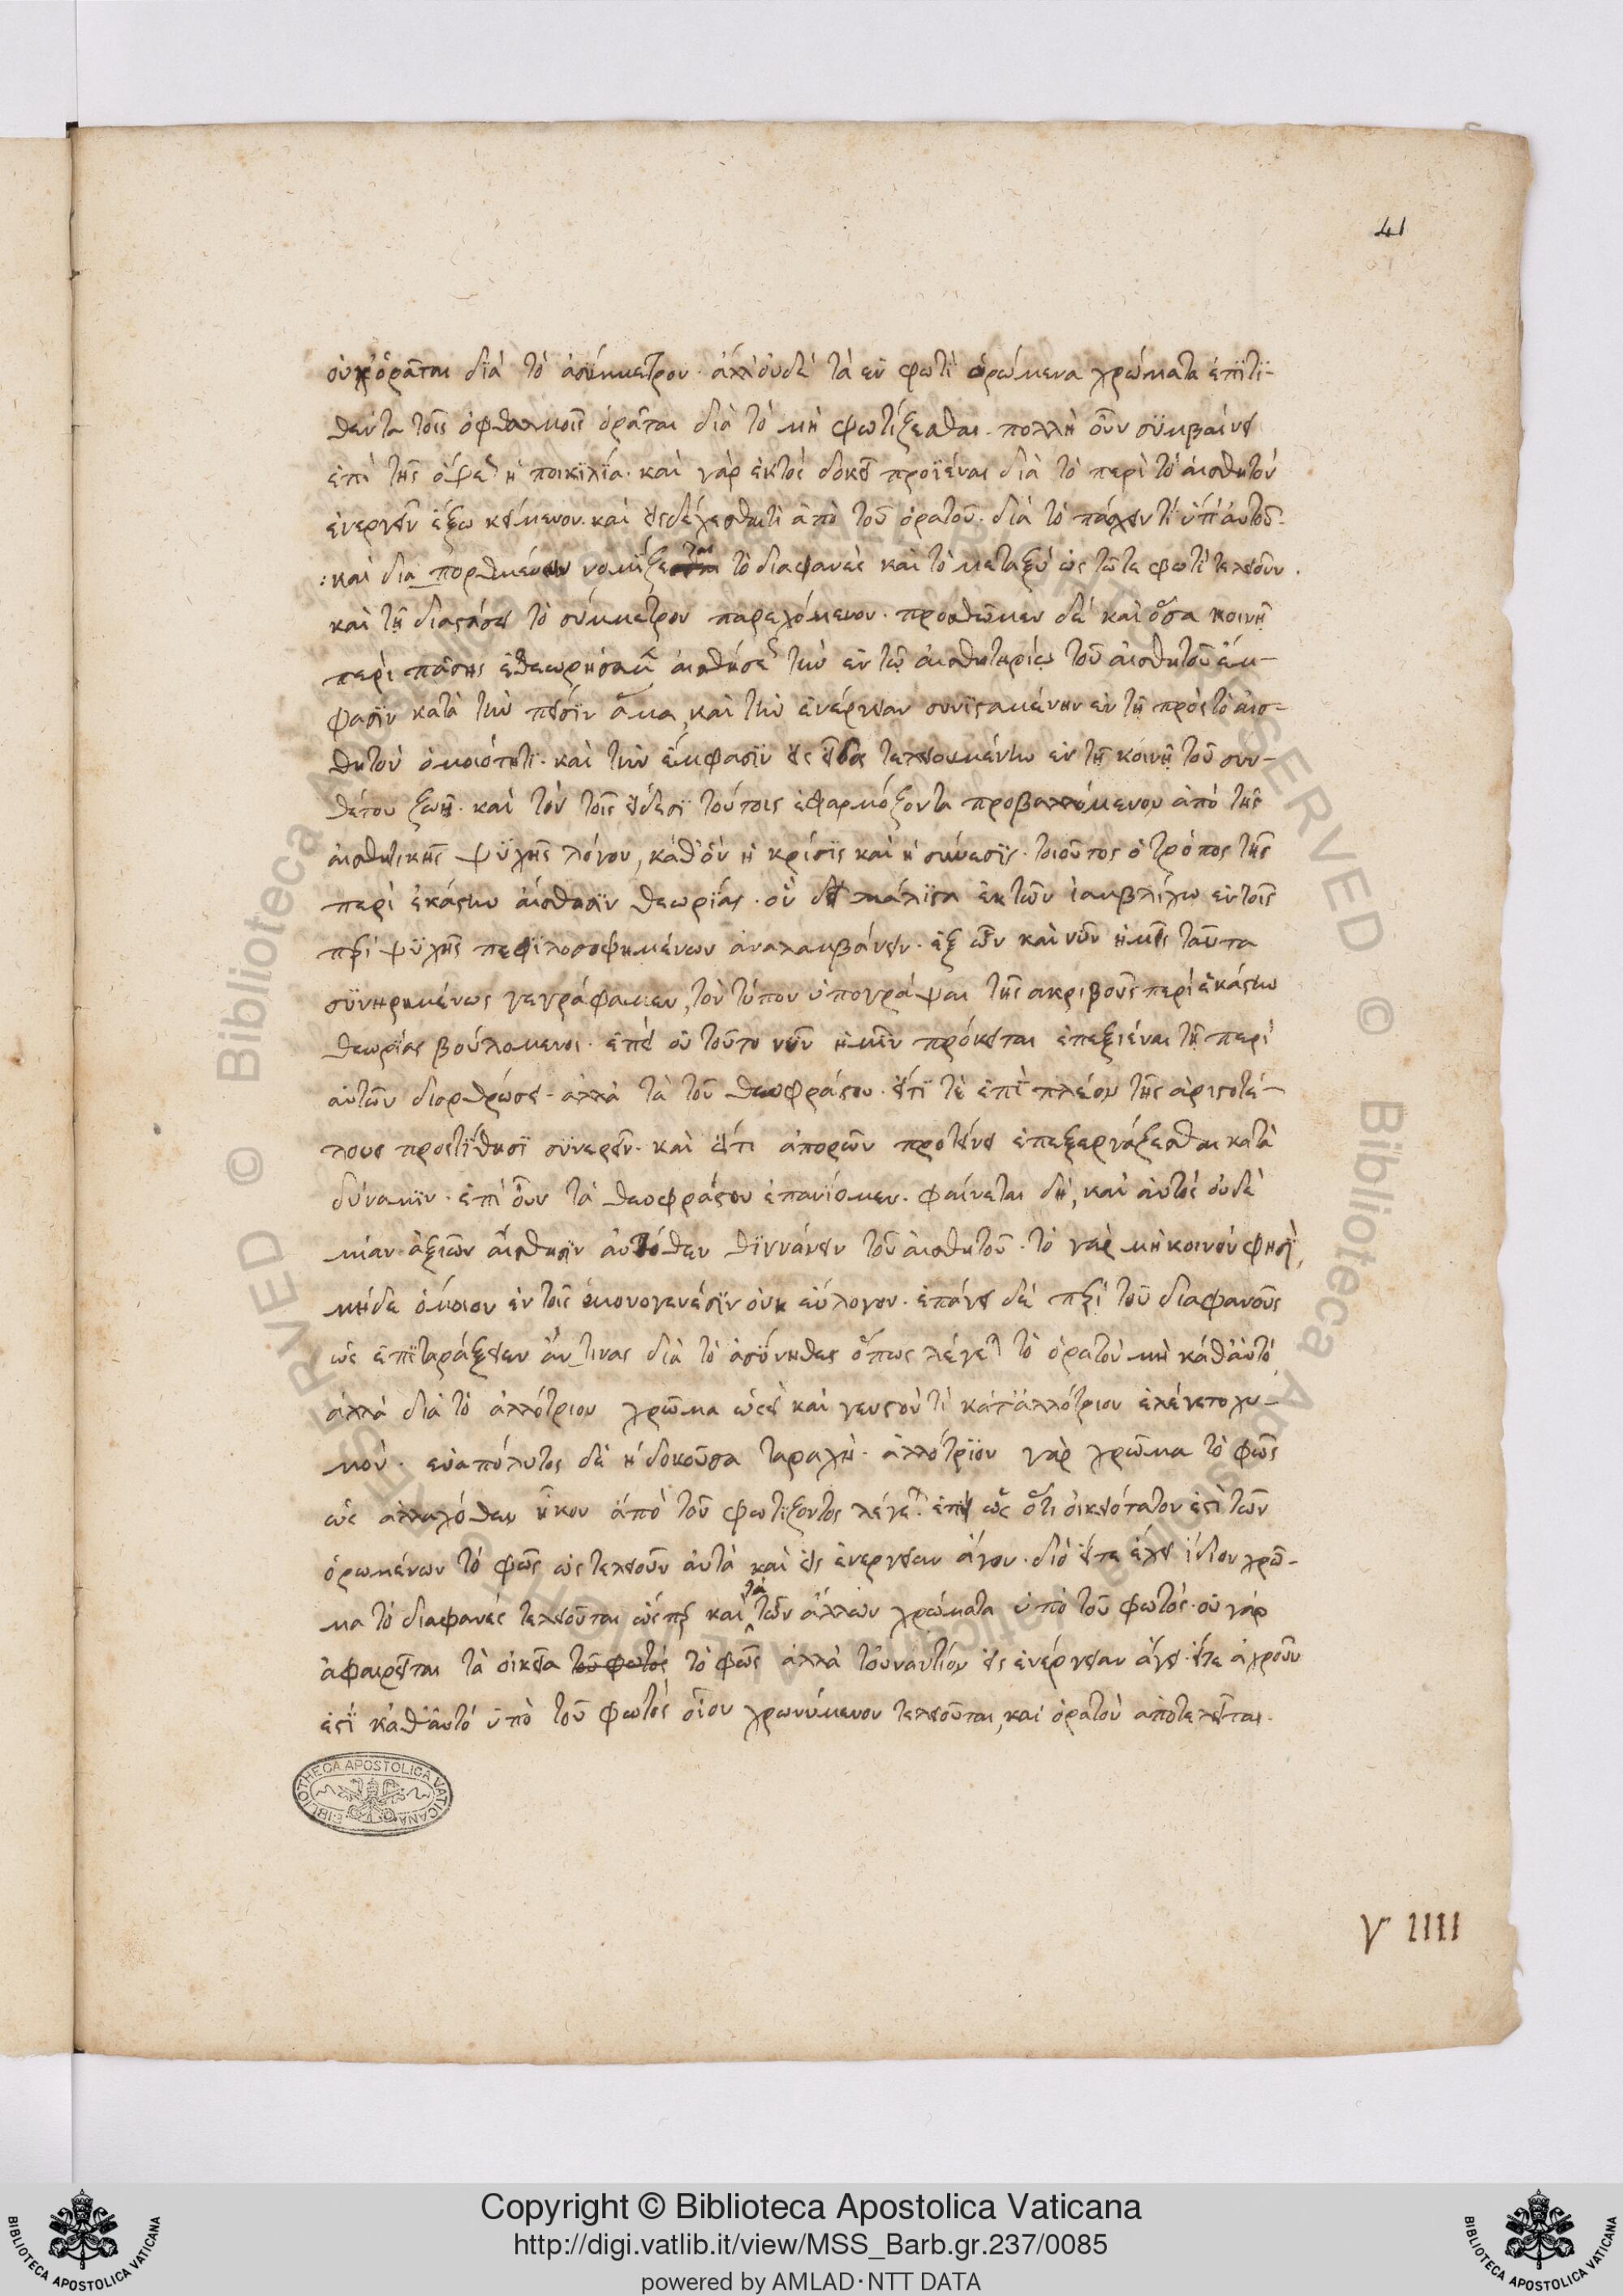 41
οὐχ ὁρᾶται διὰ τὸ ἀσύμμετρον· ἀλλ' οὐδὲ τὰ ἐν φωτὶ ὁρώμενα χρώματα ἐπιτι-
θέντα τοῖς ὀφθαλμοῖς ὁρᾶται διὰ τὸ μὴ φωτίζεσθαι. πολλὴ οὖν συμβαίνει
ἐπὶ τῆς ὄψεως ἡ ποικιλία· καὶ γὰρ ἐκτὸς δοκεῖ προϊέναι διὰ τὸ περὶ τὸ αἰσθητὸν
ἐνεργεῖν ἔξω κείμενον. καὶ εἰσδέχεσθαί τι ἀπὸ τοῦ ὁρατοῦ· διὰ τὸ πάσχειν τι ὑπ' αὐτοῦ·
: καὶ διαπορθμεύειν νομίζεται τὸ διαφανὲς καὶ τὸ μεταξὺ ὡς τῶ τε φωτὶ τελειοῦν.
καὶ τῇ διαστάσει τὸ σύμμετρον παρεχόμενον. προσθῶμεν δὲ καὶ ὅσα κοινῇ
περὶ πάσης ἐθεωρήσαμεν αἰσθήσεως τὴν ἐν τῷ αἰσθητηρίῳ τοῦ αἰσθητοῦ ἔμ-
φασιν κατὰ τὴν πεῖσιν ἅμα, καὶ τὴν ἐνέργειαν συνισταμένην ἐν τῇ πρὸς τὸ αἰσ-
θητὸν ὁμοιότητι· καὶ τὴν ἔμφασιν εἰς εἶδος τελειουμένην ἐν τῇ κοινῇ τοῦ συν-
θέτου ζωῇ· καὶ τὸν τοῖς εἴδεσι τούτοις ἐφαρμόζοντα προβαλλόμενον ἀπὸ τῆς
αἰσθητικῆς ψυχῆς λόγον, καθ' ὃν ἡ κρίσις καὶ ἡ σύνεσις. τοιοῦτος ὁ τρόπος τῆς
περὶ ἑκάστην αἴσθησιν θεωρίας· ὃν δεῖ μάλιστα ἐκ τῶν ἰαμβλίχῳ ἐν τοῖς
περὶ ψυχῆς πεφιλοσοφημένων ἀναλαμβάνειν· ἐξ ὧν καὶ νῦν ἡμεῖς ταῦτα
συνῃρημένως γεγράφαμεν, τὸν τύπον ὑπογράψαι τῆς ἀκριβοῦς περὶ ἑκάστην
θεωρίας βουλόμενοι· ἐπεὶ οὐ τοῦτο νῦν ἡμῖν πρόκειται ἐπεξιέναι τῇ περὶ
αὐτῶν διαρθρώσει· ἀλλὰ τὰ τοῦ θεοφράστου· εἴ τί τε ἐπὶ πλέον τῆς ἀριστοτέ-
λους προστίθησι συνερεῖν· καὶ εἴ τι ἀπορῶν προτείνει ἐπεξεργάζεσθαι κατὰ
δύναμιν. ἐπὶ οὖν τὰ θεοφράστου ἐπανίωμεν. φαίνεται δὴ, καὶ αὐτὸς οὐδε
μίαν ἀξιῶν αἴσθησιν αὐτόθεν θιγγάνειν τοῦ αἰσθητοῦ· τὸ γὰρ μὴ κοινόν φησι,
μήδε ὅμοιον ἐν τοῖς ὁμογενέσιν οὐκ εὔλογον. ἐπάγει δὲ περὶ τοῦ διαφανοῦς
ὡς ἐπιταράξειεν ἄν τινας διὰ τὸ ἀσύνηθες ὅπως λέγεται τὸ ὁρατὸν μὴ καθ' αὑτό
ἀλλὰ διὰ τὸ ἀλλότριον χρῶμα ὡς εἰ καὶ γευστόν τι κατ' ἀλλότριον ἐλέγετο χυ-
μόν· εὐαπόλυτος δὲ ἡ δοκοῦσα ταραχή· ἀλλότριον γὰρ χρῶμα τὸ φῶς
ὡς ἀλλαχόθεν ἧκον ἀπὸ τοῦ φωτίζοντος λέγεται· ἐπεὶ ὥς ὅτι οἰκειότατον ἐστὶ τῶν
ὁρωμένων τὸ φῶς ὡς τελειοῦν αὐτὰ καὶ εἰς ἐνέργειαν ἄγον. διὸ εἴτε ἔχει ἴδιον χρῶ-
μα τὸ διαφανὲς τελειοῦται ὥσπερ καὶ τὰ τῶν ἄλλων χρώματα ὑπὸ τοῦ φωτός· οὐ γὰρ
ἀφαιρεῖται τὰ οἰκεῖα τοῦ φωτὸς τὸ φῶς ἀλλὰ τοὐναντίον εἰς ἐνέργειαν ἄγει· εἴτε ἄχρουν
ἐστὶ καθ' αὑτό ὑπὸ τοῦ φωτὸς οἷον χρωννύμενον τελειοῦται, καὶ ὁρατὸν ἀποτελεῖται.
BIBLIOTHECA APOSTOLICA VATICANA
γ IIII
Copyright © Biblioteca Apostolica Vaticana
http://digi.vatlib.it/view/MSS_Barb.gr.237/0085
powered by AMLAD·NTT DATA
BIBLIOTECA APOSTOLICA VATICANA
BIBLIOTECA APOSTOLICA VATICANA